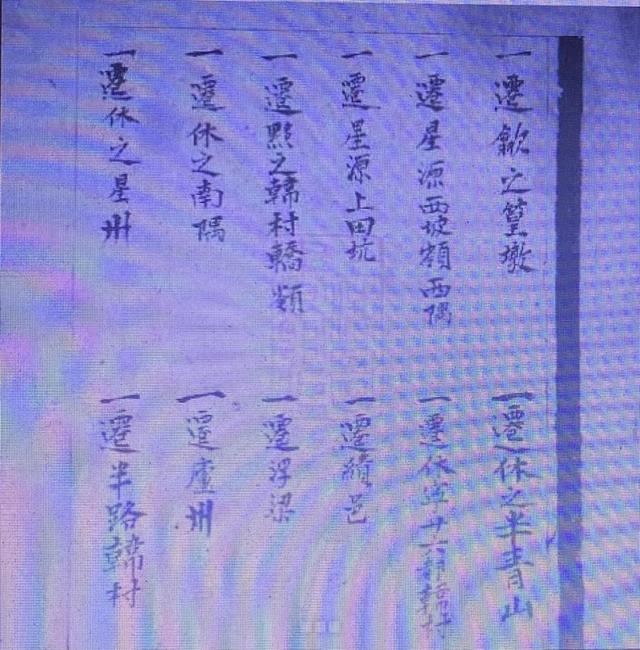 一遷歙之篁墩
一遷休之半青山
一遷星源西坡西隅
一遷休寧廿六都韓村
一遷星源上田坑
一遷績邑
一遷黟之韓村轎
一遷浮梁
一遷休之南隅
一遷廬州
一遷休之星州
一遷半路韓村